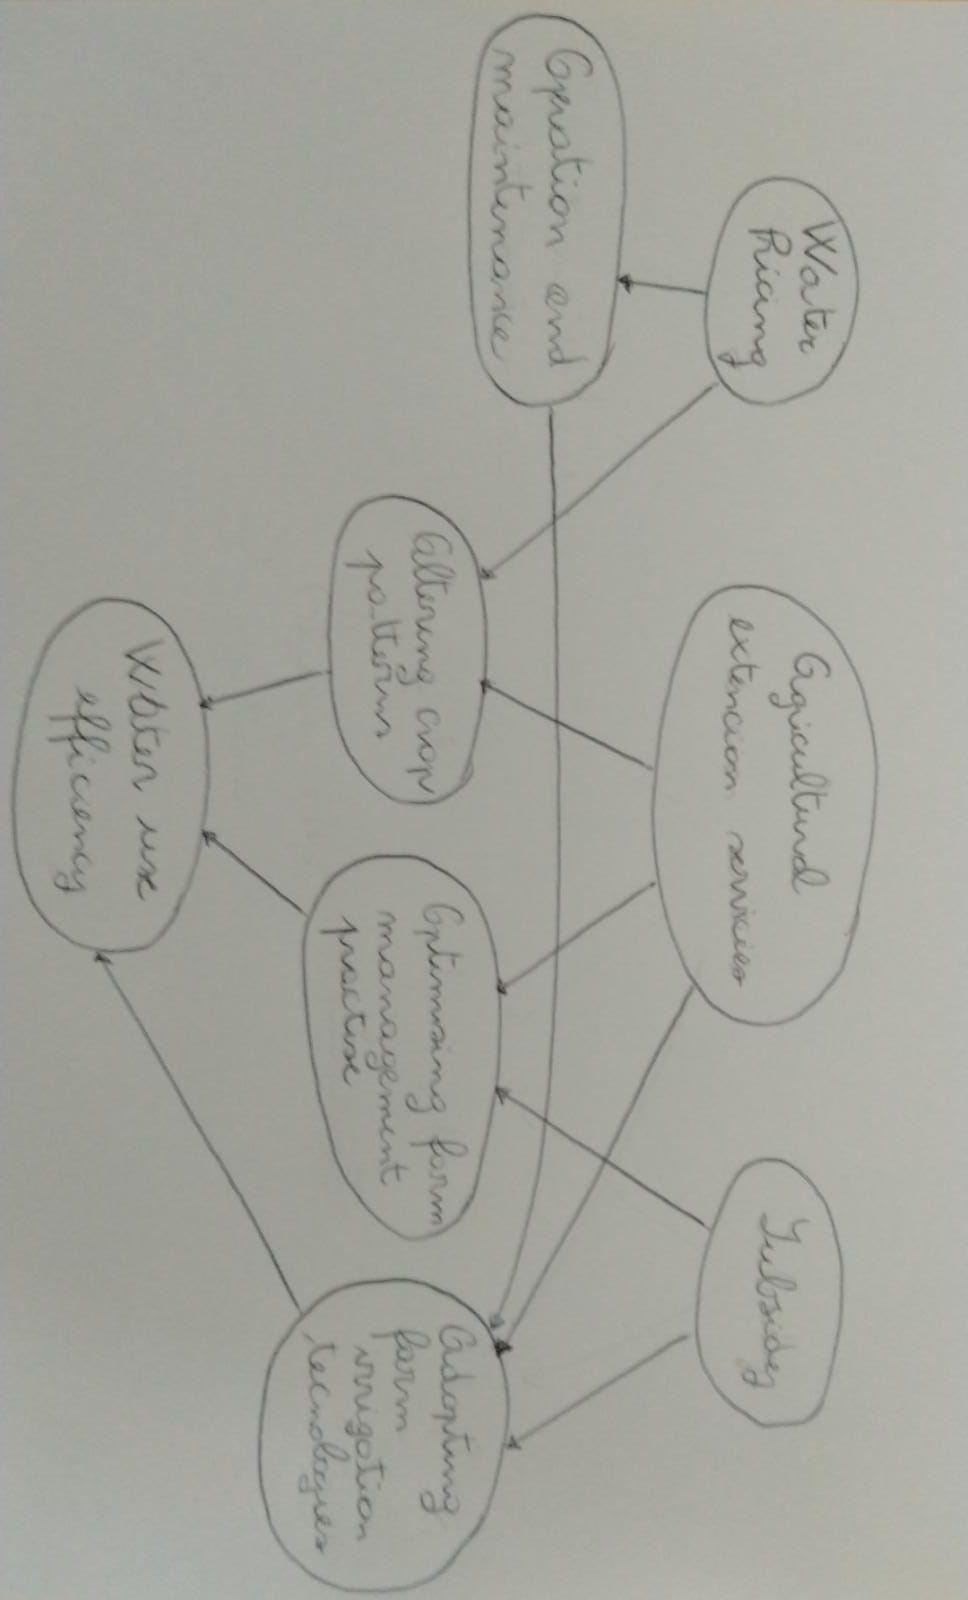 Water
Pricing
Agricultural
extencion servicies
Subsidy
Operation and
maintenance
Altering crop
patterns
Optimising farm
management
practise
Adopting
farm
irrigation
tecnologies
Water use
efficiency